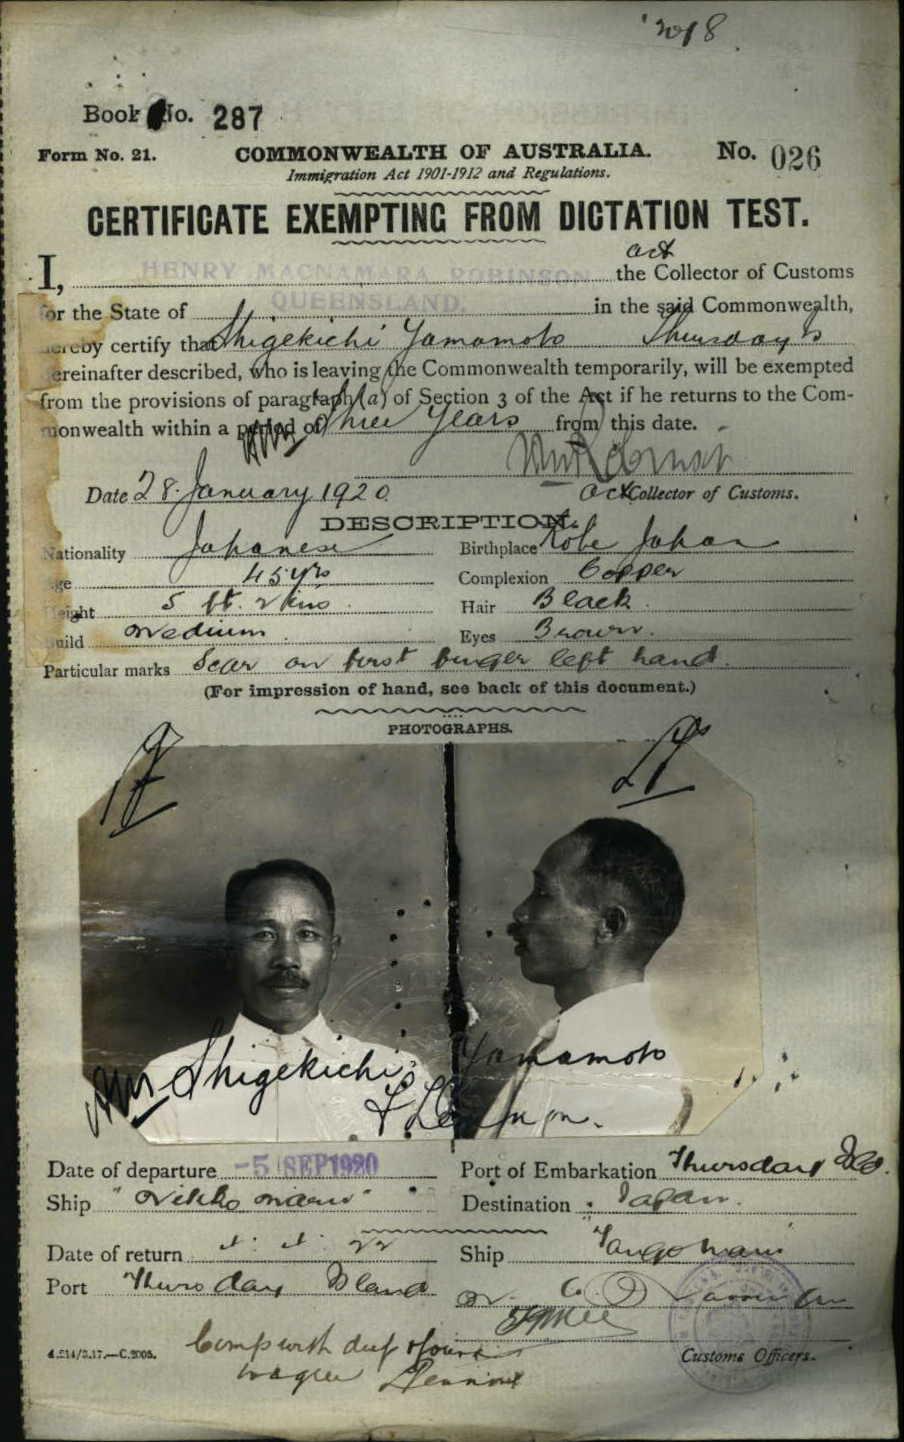 Book No. 287
Form No. 21. COMMONWEALTH OF AUSTRALIA. No. 026
Immigration Act 1901-1912 and Regulations.
CERTIFICATE EXEMPTING FROM DICTATION TEST.
act
I, HENRY MACNAMARA ROBINSON the Collector of Customs
for the State of QUEENSLAND. in the said Commonwealth,
hereby certify that Shigekichi Yamamoto Thursday Is
hereinafter described, who is leaving the Commonwealth temporarily, will be exempted
from the provisions of paragraph (a) of Section 3 of the Act if he returns to the Com-
monwealth within a period of three years from this date.
Date 28. January 1920 Act Collector of Customs.
DESCRIPTION.
Nationality Japanese Birthplace Kobe Japan
Age 45 yrs Complexion Copper
Height 5 ft. 2 ins Hair Black
Build Medium Eyes Brown.
Particular marks Scar on first finger left hand.
(For impression of hand, see back of this document.)
PHOTOGRAPHS.
Shigekichi Yamamoto
Date of departure -5 SEP 1920 Port of Embarkation Thursday Isd.
Ship "Nikko Maru" Destination Japan.
Date of return Ship Tango Maru
Port Thursday Island
4.514/3.17.—C.2005. Customs Officers.
Comp with dup